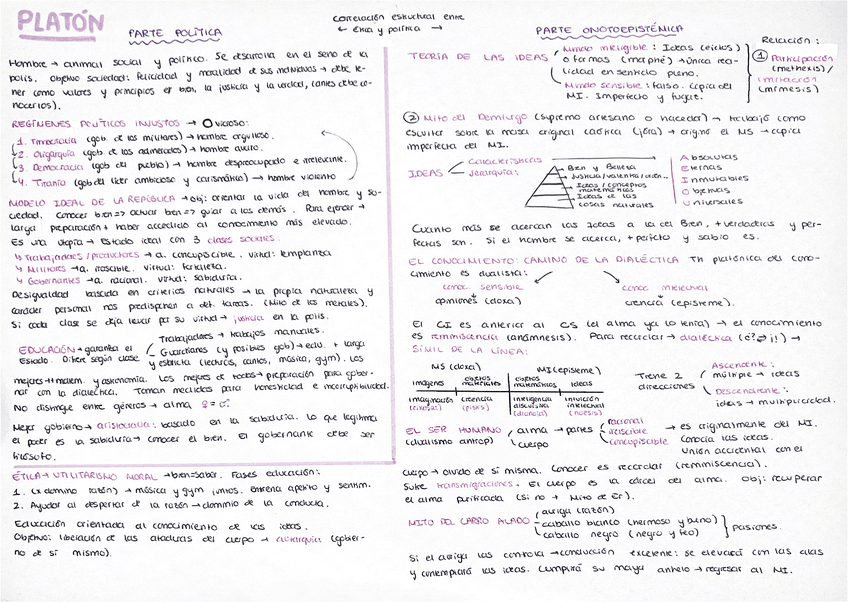 PLATÓN
PARTE POLÍTICA
correlación estructural entre
← ética y política →
Hombre → animal social y político. Se desarrolla en el seno de la
polis. Objetivo sociedad: felicidad y moralidad de sus individuos → debe te-
ner como valores y principios el bien, la justicia y la verdad, (antes debe co-
nocerlos).
REGÍMENES POLÍTICOS INJUSTOS → O vicioso:
1. Timocracia (gob. de los militares) → hombre orgulloso.
2. Oligarquía (gob. de los adinerados) → hombre avaro.
3. Democracia (gob. del pueblo) → hombre despreocupado e irrelevante.
4. Tiranía (gob. del líder ambicioso y carismático) → hombre violento
MODELO IDEAL DE LA REPÚBLICA → obj: orientar la vida del hombre y so-
ciedad. Conocer bien => actuar bien => guiar a los demás. Para ejercer →
larga preparación + haber accedido al conocimiento más elevado.
Es una utopía → Estado ideal con 3 clases sociales.
↳ Trabajadores / productores → a. concupiscible. virtud: templanza
↳ Militares → a. irascible. virtud: fortaleza.
↳ Gobernantes → a. racional. virtud: sabiduría.
Desigualdad basada en criterios naturales → la propia naturaleza y
carácter personal nos predisponen a det. tareas. (Mito de los metales).
Si cada clase se deja llevar por su virtud → justicia en la polis.
EDUCACIÓN → garantiza el
Estado. Difiere según clase
Trabajadores → trabajos manuales.
Guardianes (y posibles gob) → edu. + larga
y estricta (lectura, cantos, música, gym). Los
mejores → + matem. y astronomía. Los mejores de todos → preparación para gober-
nar con la dialéctica. Toman medidas para honestidad e incorruptibilidad.
No distingue entre géneros → alma ♀ = ♂.
Mejor gobierno → aristocracia: basado en la sabiduría. Lo que legitima
el poder es la sabiduría → conocer el bien. El gobernante debe ser
filósofo.
ÉTICA → UTILITARISMO MORAL → bien = saber. Fases educación:
1. (x domino razón) → música y gym juntos. Entrena apetito y sentim.
2. Ayudar al despertar de la razón → dominio de la conducta.
Educación orientada al conocimiento de las ideas.
Objetivo: liberación de las ataduras del cuerpo → autarquía (gobier-
no de sí mismo).
PARTE ONOTOEPISTÉMICA
TEORÍA DE LAS IDEAS
Mundo inteligible: Ideas (eidos)
o formas (morphé) → única rea-
lidad en sentido pleno.
Mundo sensible: falso. Copia del
MI. Imperfecto y fugaz.
Relación:
1 Participación
(methexis) /
imitación
(mímesis)
2 Mito del Demiurgo (supremo artesano o hacedor) → trabajó como
escultor sobre la masa original caótica (jóra) → originó el MS → copia
imperfecta del MI.
IDEAS
Características
Jerarquía:
Bien y Belleza
Justicia/valentía/din...
Ideas / conceptos
matemáticos
Ideas de las
cosas naturales
Absolutas
Eternas
Inmutables
Objetivas
Universales
Cuanto más se acercan las Ideas a la del Bien, + verdaderas y per-
fectas son. Si el hombre se acerca, + perfecto y sabio es.
EL CONOCIMIENTO: CAMINO DE LA DIALÉCTICA Tª platónica del cono-
cimiento es dualista:
conoc. sensible
opiniones (doxa)
conoc. intelectual
ciencia (episteme).
El CI es anterior al CS (el alma ya lo tenía) → el conocimiento
es reminiscencia (anámnesis). Para recordar → dialéctica (¿? ⇄ ¡!) →
SÍMIL DE LA LÍNEA:
MS (doxa)
MI (episteme)
imágenes
objetos
materiales
objetos
matemáticos
Ideas
imaginación
(eikasia)
creencia
(pistis)
inteligencia
discursiva
(dianoia)
intuición
intelectual
(noesis)
Tiene 2
direcciones
Ascendente:
múltiple → ideas
Descendente:
ideas → multiplicidad.
EL SER HUMANO
(dualismo antrop)
alma → partes
cuerpo
racional
irascible
concupiscible
→ es originalmente del MI.
Conocía las ideas.
Unión accidental con el
cuerpo → olvido de sí misma. Conocer es recordar (reminiscencia).
Sufre transmigraciones. El cuerpo es la cárcel del alma. Obj: recuperar
el alma purificada (si no → Mito de Er).
MITO DEL CARRO ALADO
auriga (razón)
caballo blanco (hermoso y bueno)
caballo negro (negro y feo)
pasiones.
Si el auriga las controla → conducción excelente: se elevará con las alas
y contemplará las ideas. Cumplirá su mayor anhelo → regresar al MI.